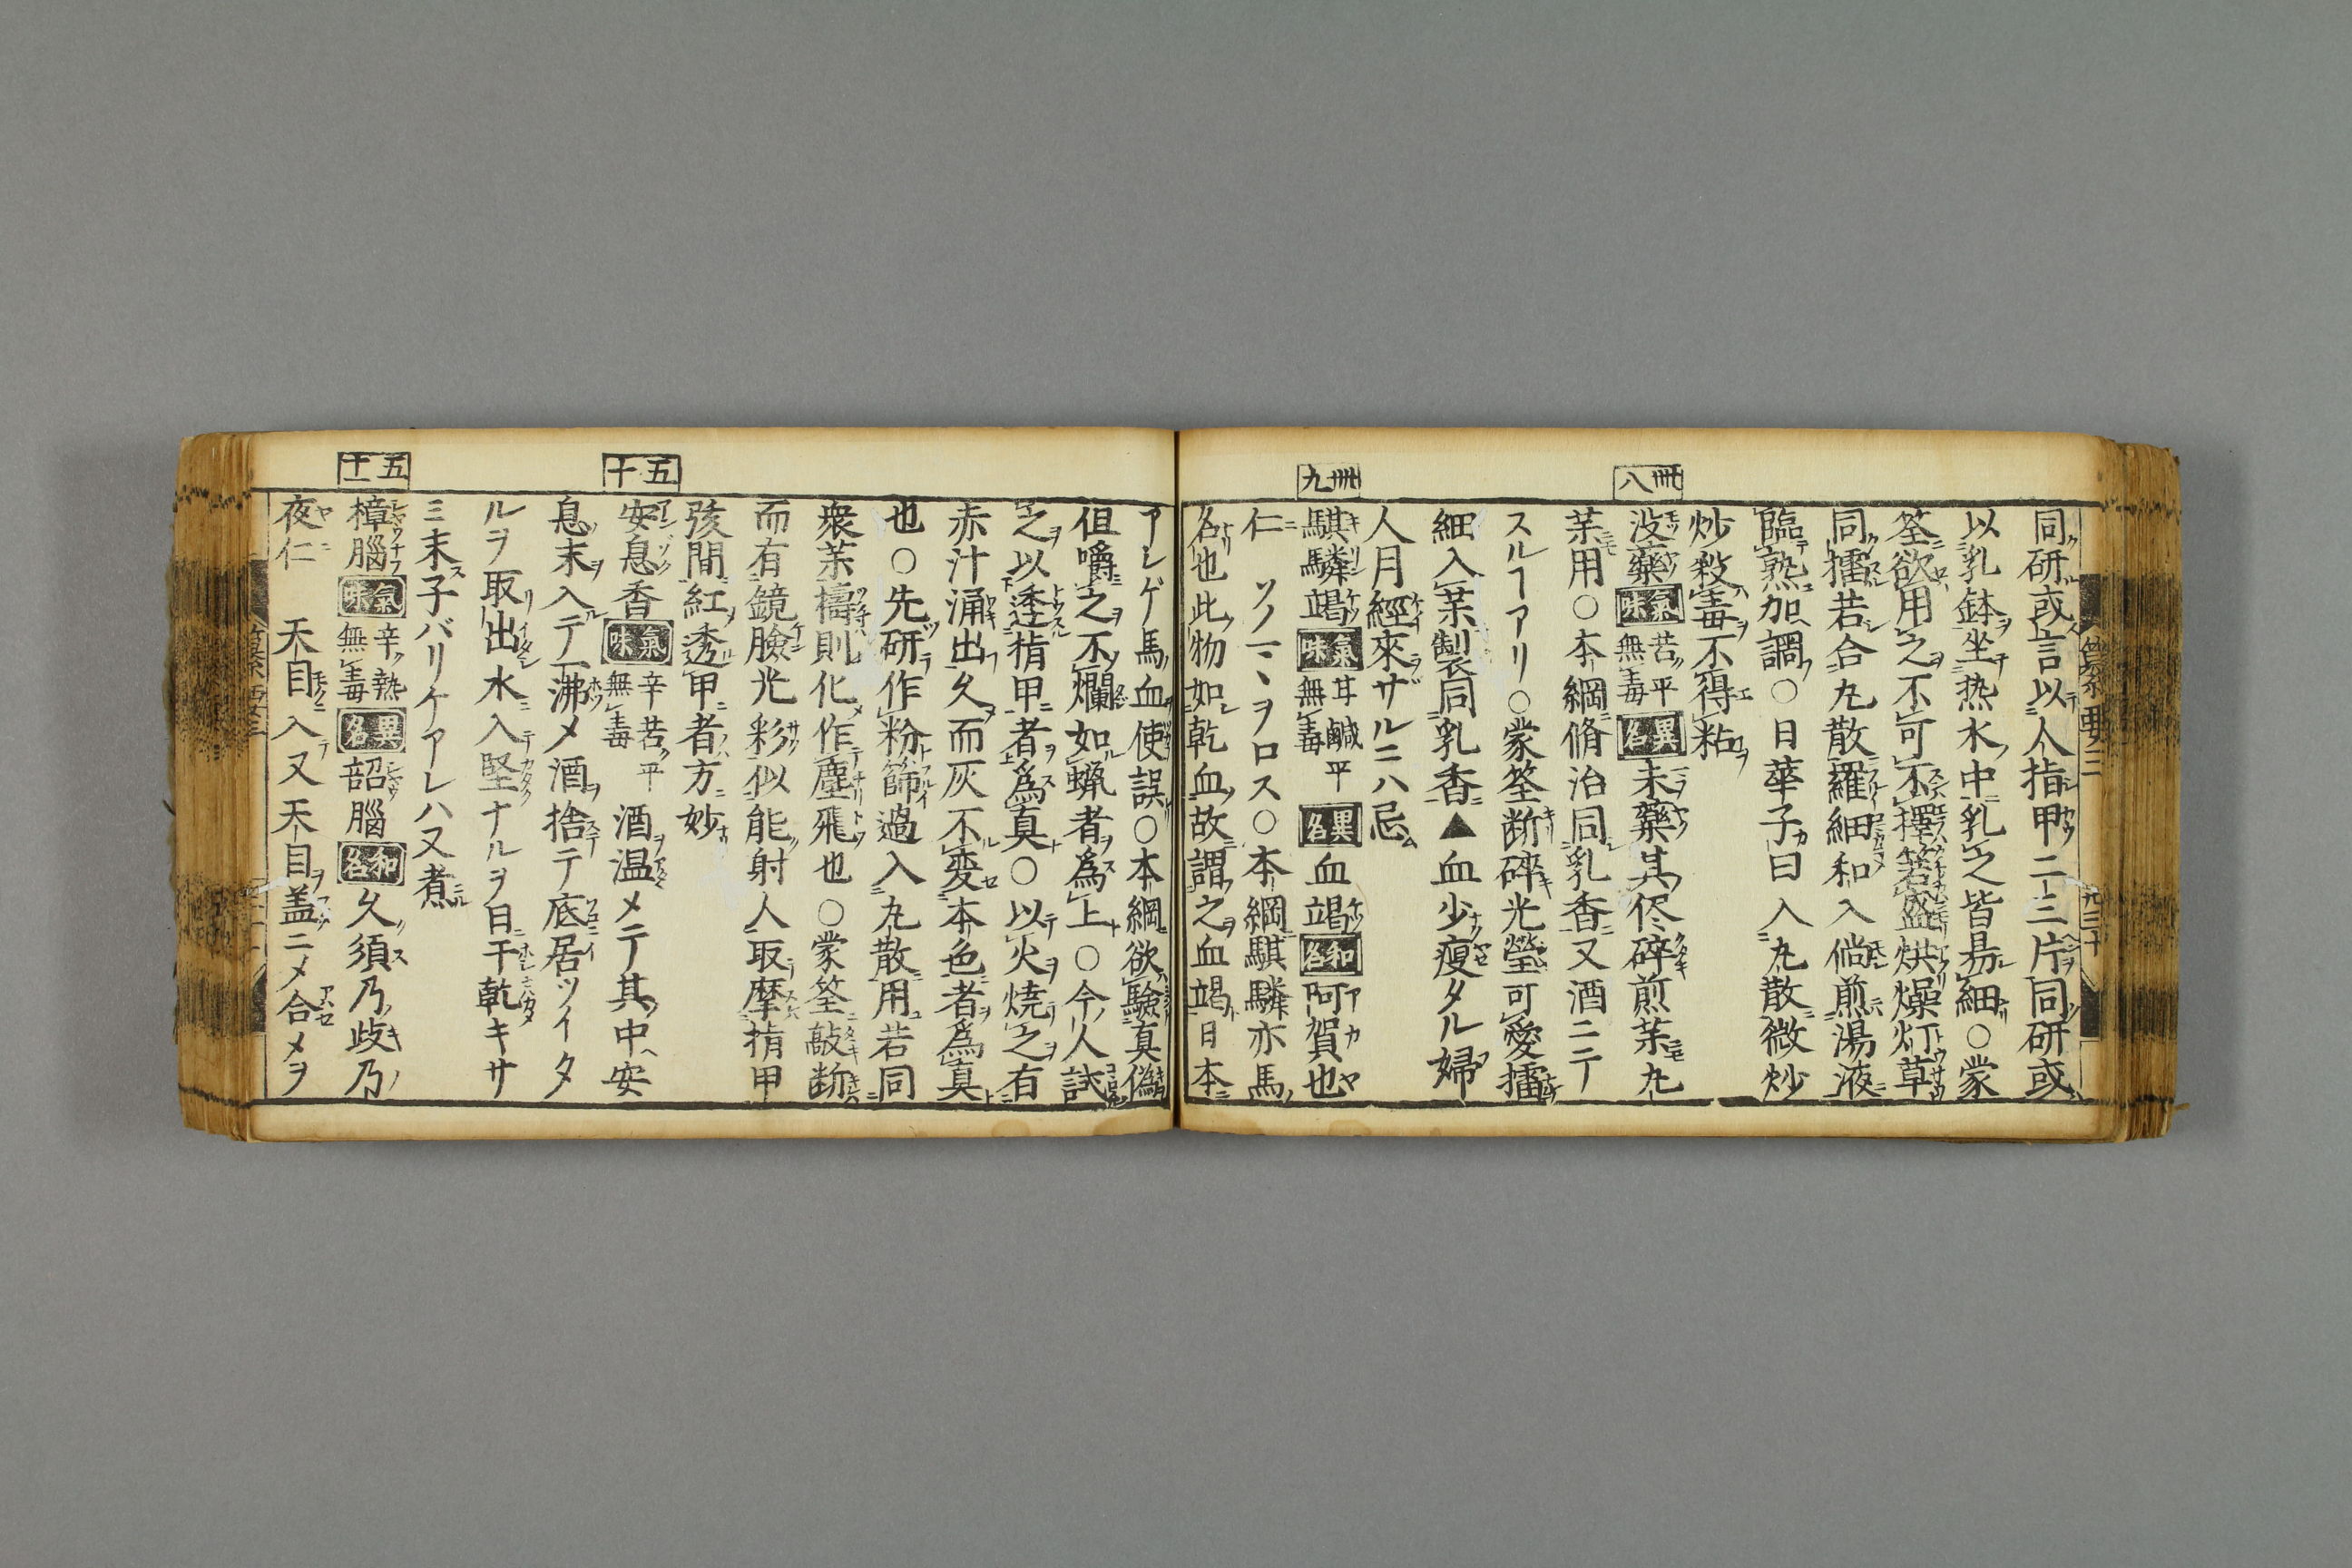 同研或言以人指甲二三片同研或
以乳鉢坐热水中乳之皆易細○蒙
筌欲用之不可不擇箬盛烘燥灯草
同擂若合丸散羅細和入倘煎湯液
臨熟加調○日華子曰入丸散微炒
炒殺毒不得粘
卌八
没藥 氣味 苦平無毒 異名 末藥其侭碎煎茉丸
茉用○本綱脩治同乳香又酒ニテ
スルヿアリ○蒙筌断碎光瑩可愛擂
細入茉製同乳香▲血少瘦タル婦
人月經來サルニハ忌
卌九
騏驎竭 氣味 甘鹹平無毒 異名 血竭 和名 阿賀也
仁 ソノマヽヲロス○本綱騏驎亦馬
名也此物如乾血故謂之血竭日本
アレゲ馬血使誤○本綱欲驗真偽
但嚼之不爛如蝋者爲上○今人試
之以透指甲者爲真○以火焼之有
赤汁涌出久而灰不変本色者爲真
也○先研作粉篩過入丸散用若同
衆茉擣則化作塵飛也○蒙筌敲断
而有鏡臉光彩似能射人取摩指甲
弦間紅透甲者方妙
五十
安息香 氣味 辛苦平無毒 酒温メテ其中安
息末入テ一沸メ酒捨テ底居ツイタ
ルヲ取出水入堅ナルヲ日干乾キサ
ミ末子バリケアレハ又煮
五十一
樟腦 氣味 辛熱無毒 異名 韶腦 和名 久須乃歧乃
夜仁 天目入又天目盖ニメ合メヲ